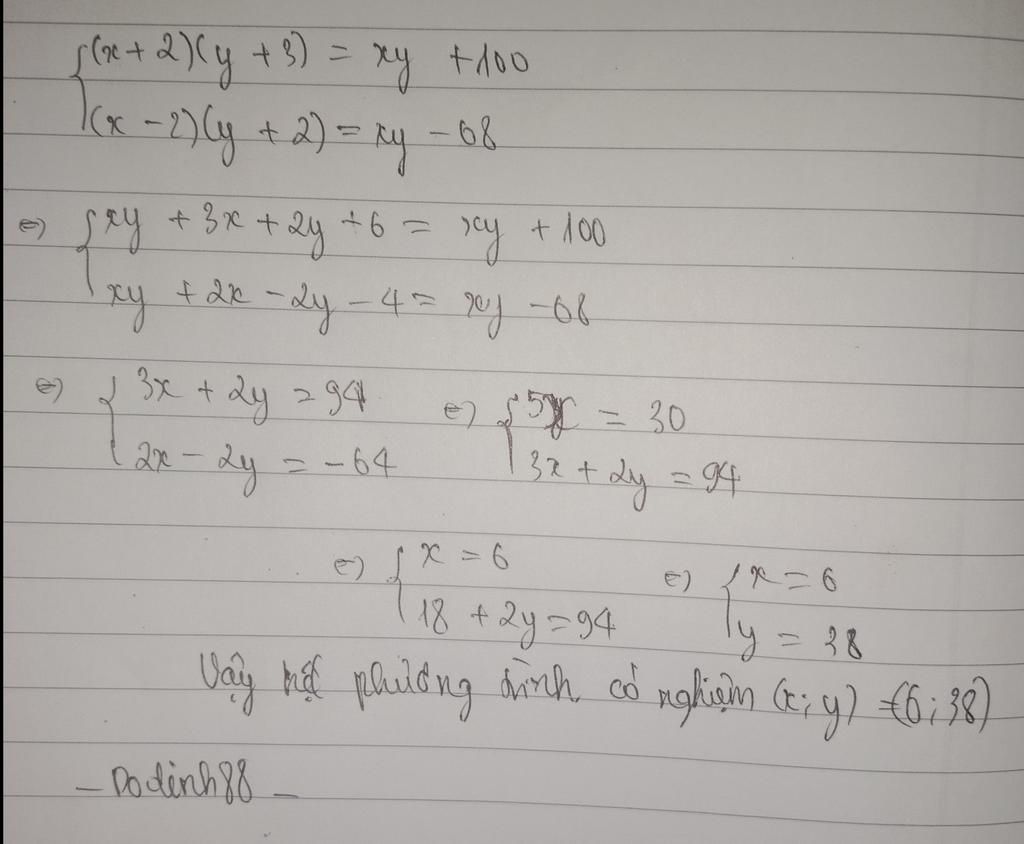 {(x + 2)(y + 3) = xy + 100
(x - 2)(y + 2) = xy - 68
⇔ {xy + 3x + 2y + 6 = xy + 100
xy + 2x - 2y - 4 = xy - 68
⇔ {3x + 2y = 94 ⇔ {5x = 30
2x - 2y = -64 3x + 2y = 94
⇔ {x = 6 ⇔ {x = 6
18 + 2y = 94 y = 38
Vậy hệ phương trình có nghiệm (x; y) = (6; 38)
- Dodinh88 -